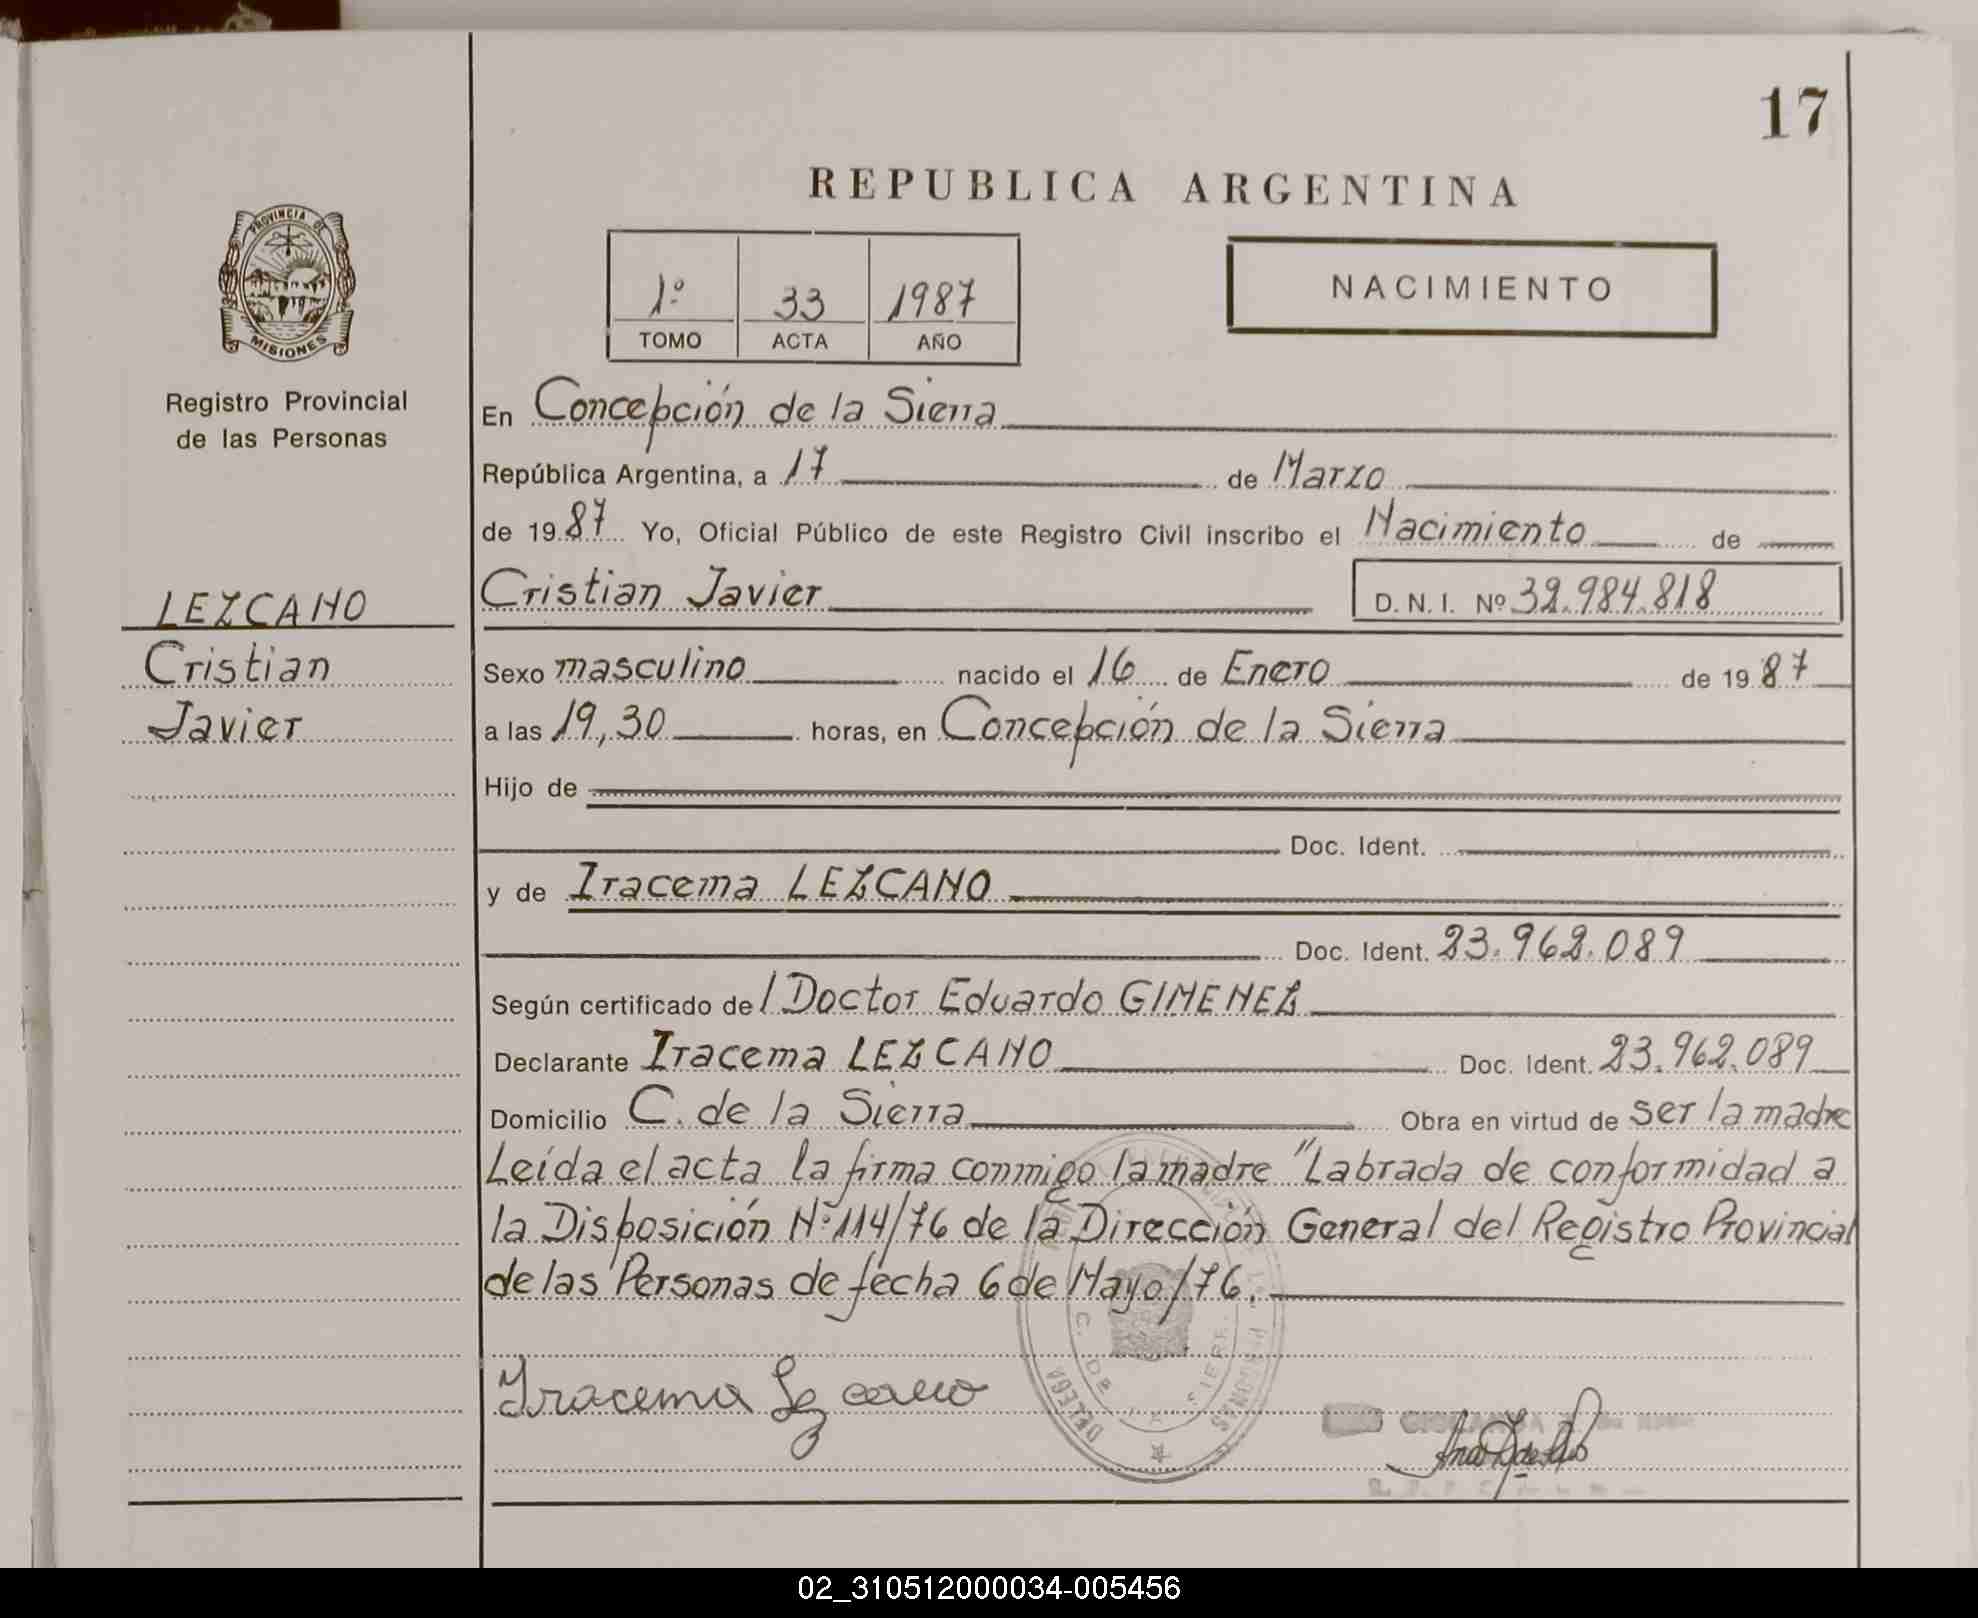 17
REPUBLICA ARGENTINA
PROVINCIA DE
MISIONES
Registro Provincial
de las Personas
1º 33 1987
TOMO ACTA AÑO
NACIMIENTO
En Concepción de la Sierra
República Argentina, a 17 de Marzo
de 1987 Yo, Oficial Público de este Registro Civil inscribo el Nacimiento de
LEZCANO
Cristian
Javier
Cristian Javier D. N. I. Nº 32.984.818
Sexo masculino nacido el 16 de Enero de 1987
a las 19,30 horas, en Concepción de la Sierra
Hijo de
Doc. Ident.
y de Iracema LEZCANO
Doc. Ident. 23.962.089
Según certificado del Doctor Eduardo GIMENEZ
Declarante Iracema LEZCANO Doc. Ident. 23.962.089
Domicilio C. de la Sierra Obra en virtud de ser la madre
Leída el acta la firma conmigo la madre "Labrada de conformidad a
la Disposición Nº 114/76 de la Dirección General del Registro Provincial
de las Personas de fecha 6 de Mayo/76.
Iracema Lezcano
02_310512000034-005456